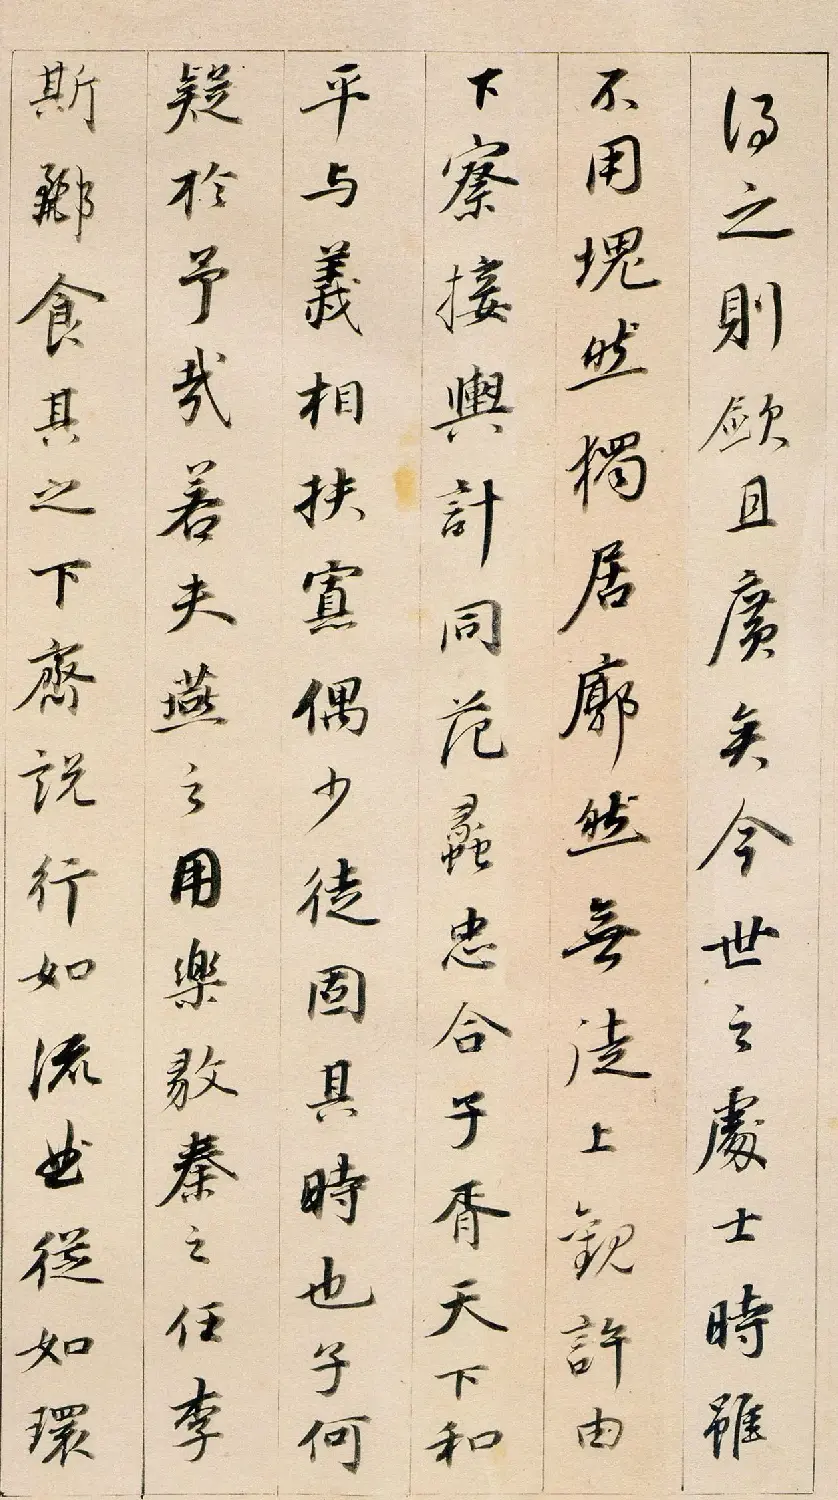 得之則歛且廣矣今世之處士時雖
不用塊然獨居廓然無徒上觀許由
下察接輿計同范蠡忠合子胥天下和
平与義相扶寡偶少徒固其時也子何
疑於予哉若夫燕之用樂毅秦之任李
斯酈食其之下齊說行如流曲從如環